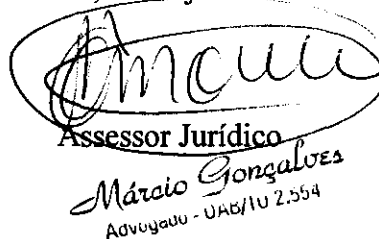 Assessor Jurídico
Márcio Gonçalves
Advogado - OAB/TO 2.554